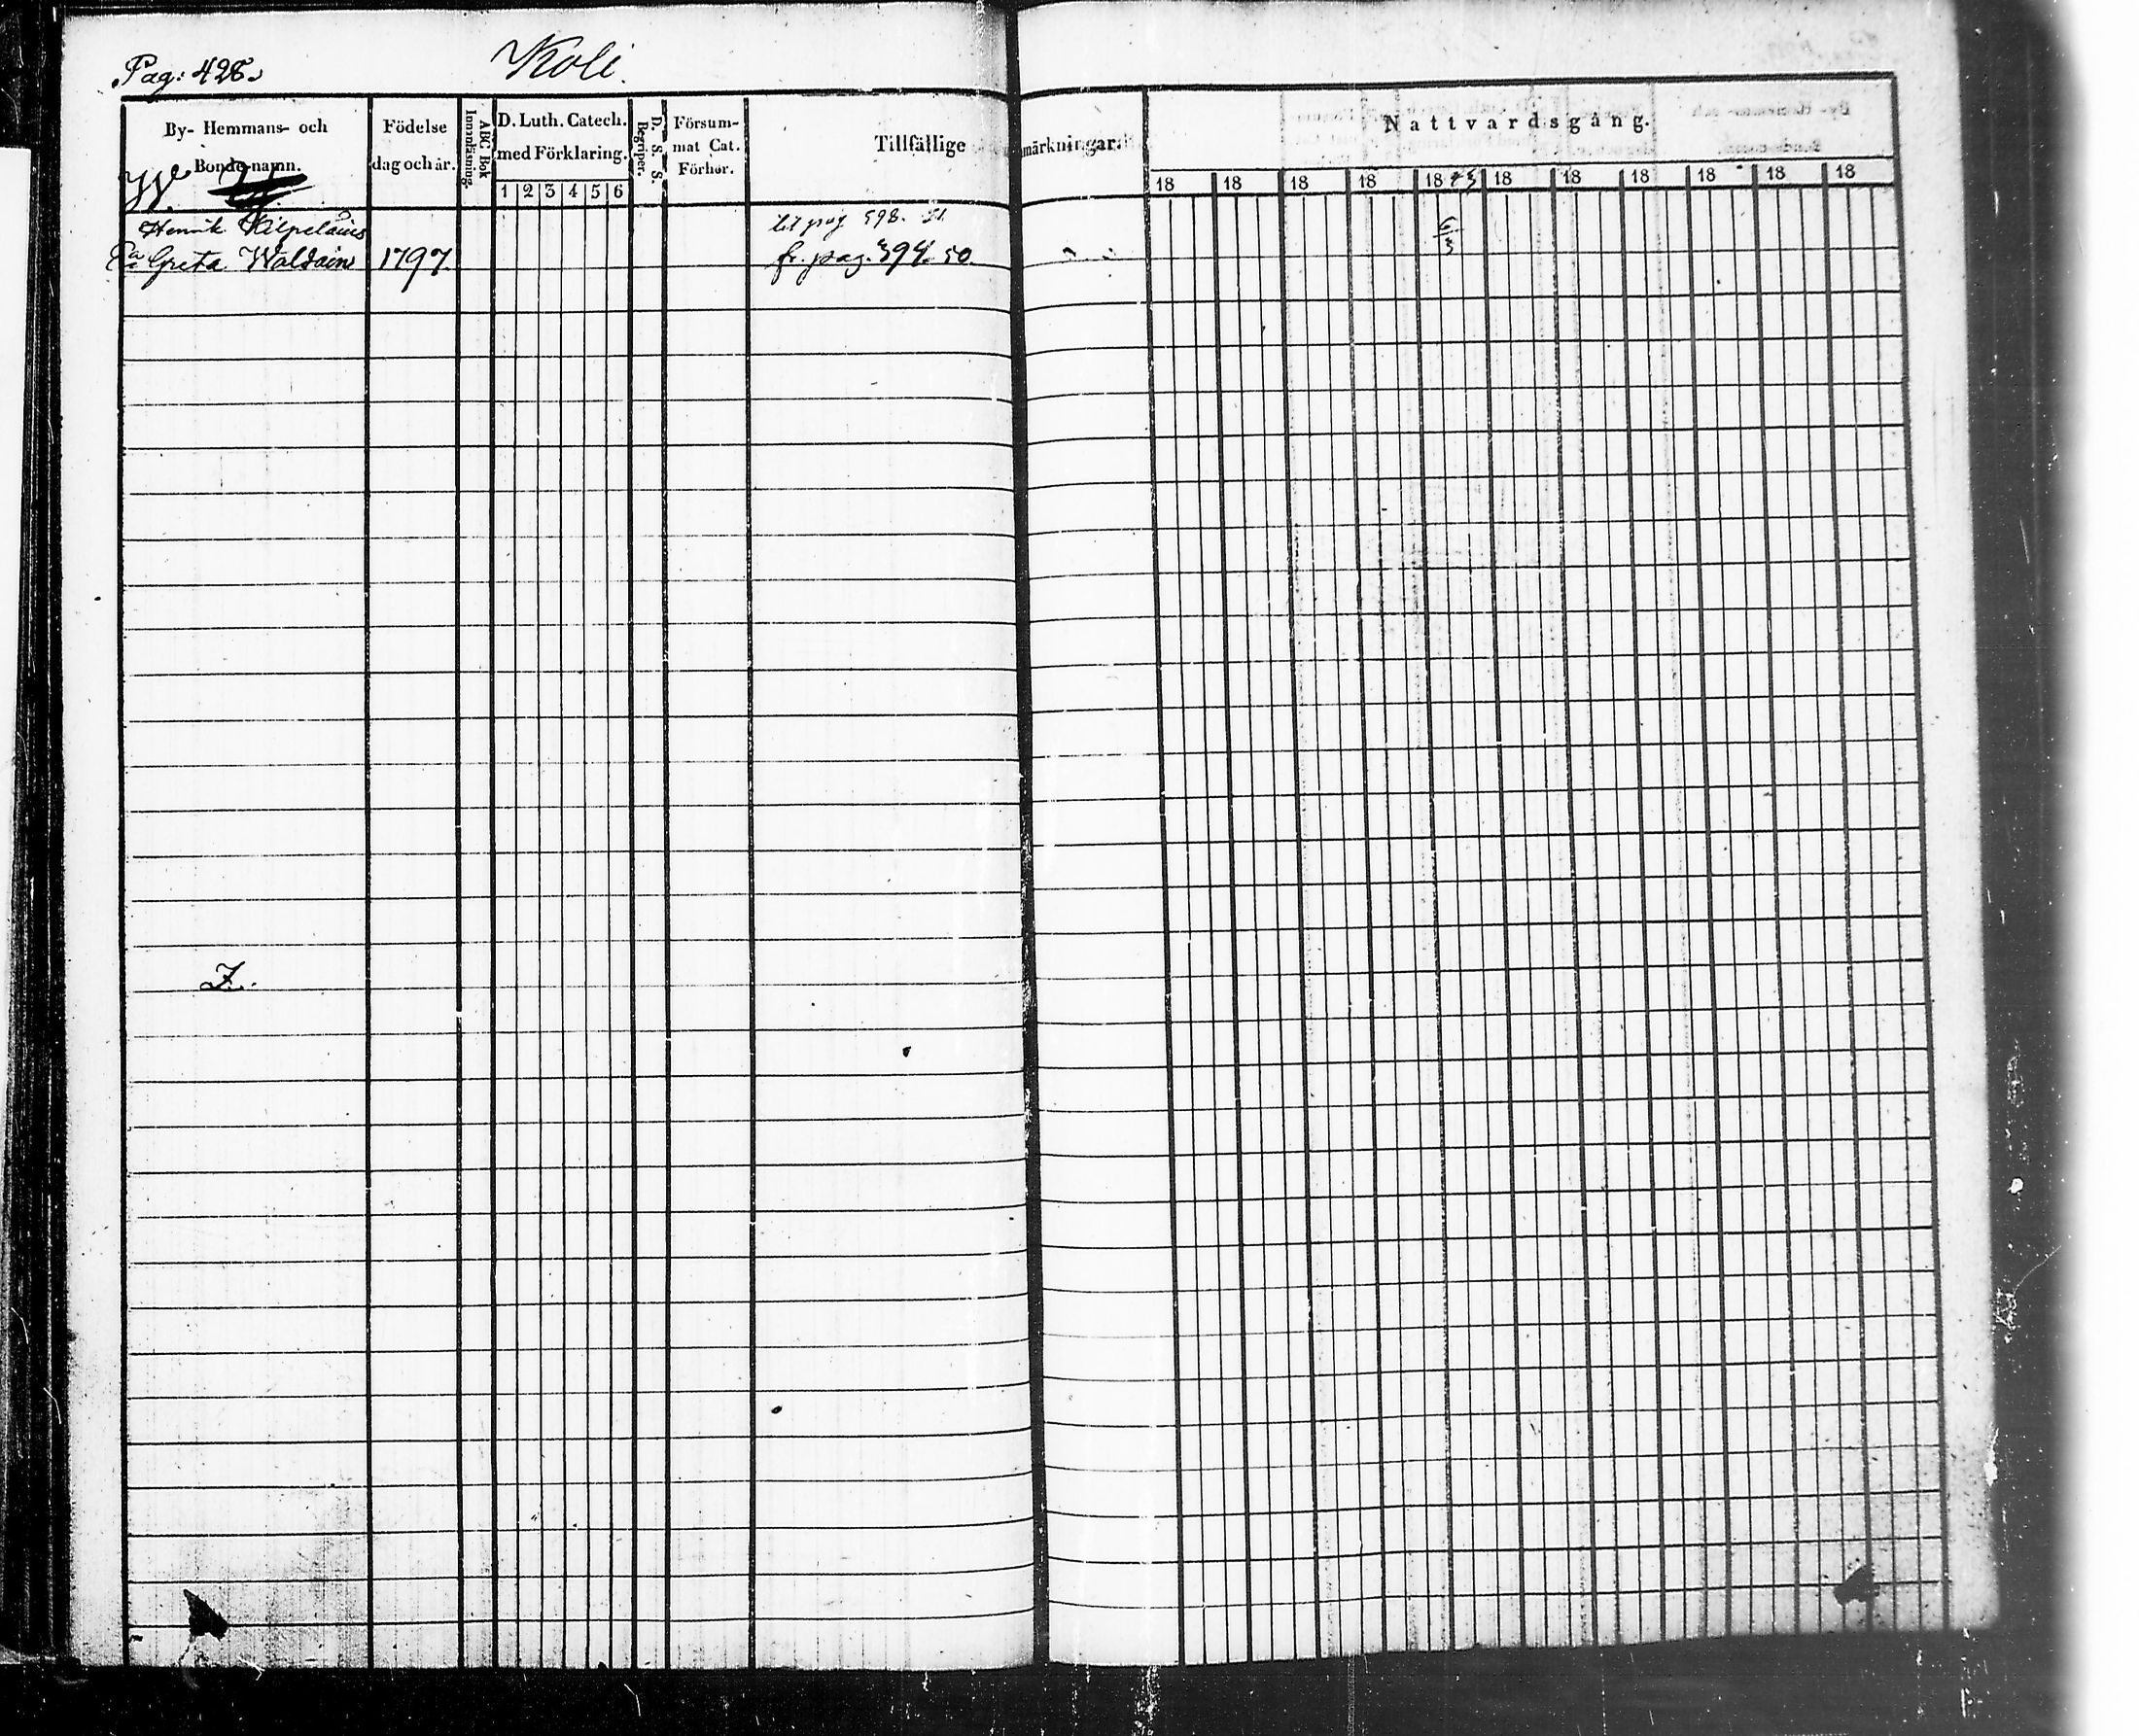 Pag: 428.
Koli.
By- Hemmans- och Bonde-namn.
Födelse dag och år.
ABC Bok Innanläsning.
D. Luth. Catech. med Förklaring.
1 2 3 4 5 6
D. S. S. Begriper.
Försum-mat Cat. Förhör.
Tillfällige
märkningar.
Nattvardsgång.
18 18 18 18 18 45 18 18 18 18 18 18
W.
Henrik Kilpeläins
Greta Waldain 1797.
fr. pag. 394. 50.
6/3